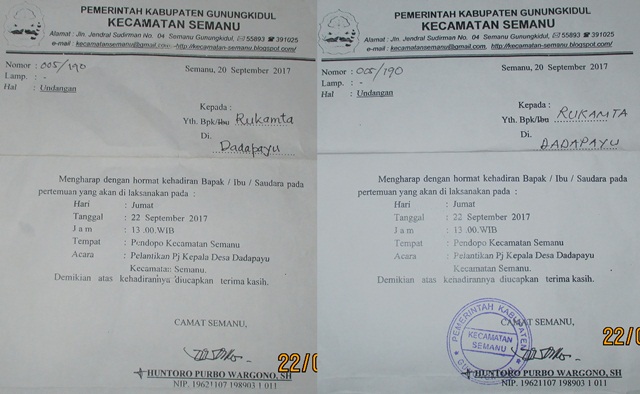 PEMERINTAH KABUPATEN GUNUNGKIDUL
KECAMATAN SEMANU
Alamat : Jln. Jendral Sudirman No. 04 Semanu Gunungkidul, 55893 391025
e-mail : kecamatansemanu@gmail.com -http://kecamatan-semanu.blogspot.com/
Nomor : 005/190
Semanu, 20 September 2017
Lamp. : -
Hal : Undangan
Kepada :
Yth. Bpk/Ibu Rukamta
Di.
Dadapayu
Mengharap dengan hormat kehadiran Bapak / Ibu / Saudara pada
pertemuan yang akan di laksanakan pada :
Hari : Jumat
Tanggal : 22 September 2017
J a m : 13 .00.WIB
Tempat : Pendopo Kecamatan Semanu
Acara : Pelantikan Pj Kepala Desa Dadapayu
Kecamatan Semanu.
Demikian atas kehadirannya diucapkan terima kasih.
CAMAT SEMANU,
22/0
HUNTORO PURBO WARGONO, SH
NIP. 19621107 198903 1 011
PEMERINTAH KABUPATEN GUNUNGKIDUL
KECAMATAN SEMANU
Alamat : Jln. Jendral Sudirman No. 04 Semanu Gunungkidul, 55893 391025
e-mail : kecamatansemanu@gmail.com, http://kecamatan-semanu.blogspot.com/
Nomor : 005/190
Semanu, 20 September 2017
Lamp. : -
Hal : Undangan
Kepada :
Yth. Bpk/Ibu RUKAMTA
Di.
DADAPAYU
Mengharap dengan hormat kehadiran Bapak / Ibu / Saudara pada
pertemuan yang akan di laksanakan pada :
Hari : Jumat
Tanggal : 22 September 2017
J a m : 13 .00.WIB
Tempat : Pendopo Kecamatan Semanu
Acara : Pelantikan Pj Kepala Desa Dadapayu
Kecamatan Semanu.
Demikian atas kehadirannya diucapkan terima kasih.
CAMAT SEMANU,
PEMERINTAH KABUPATEN
KECAMATAN
SEMANU
22/0
HUNTORO PURBO WARGONO, SH
NIP. 19621107 198903 1 011